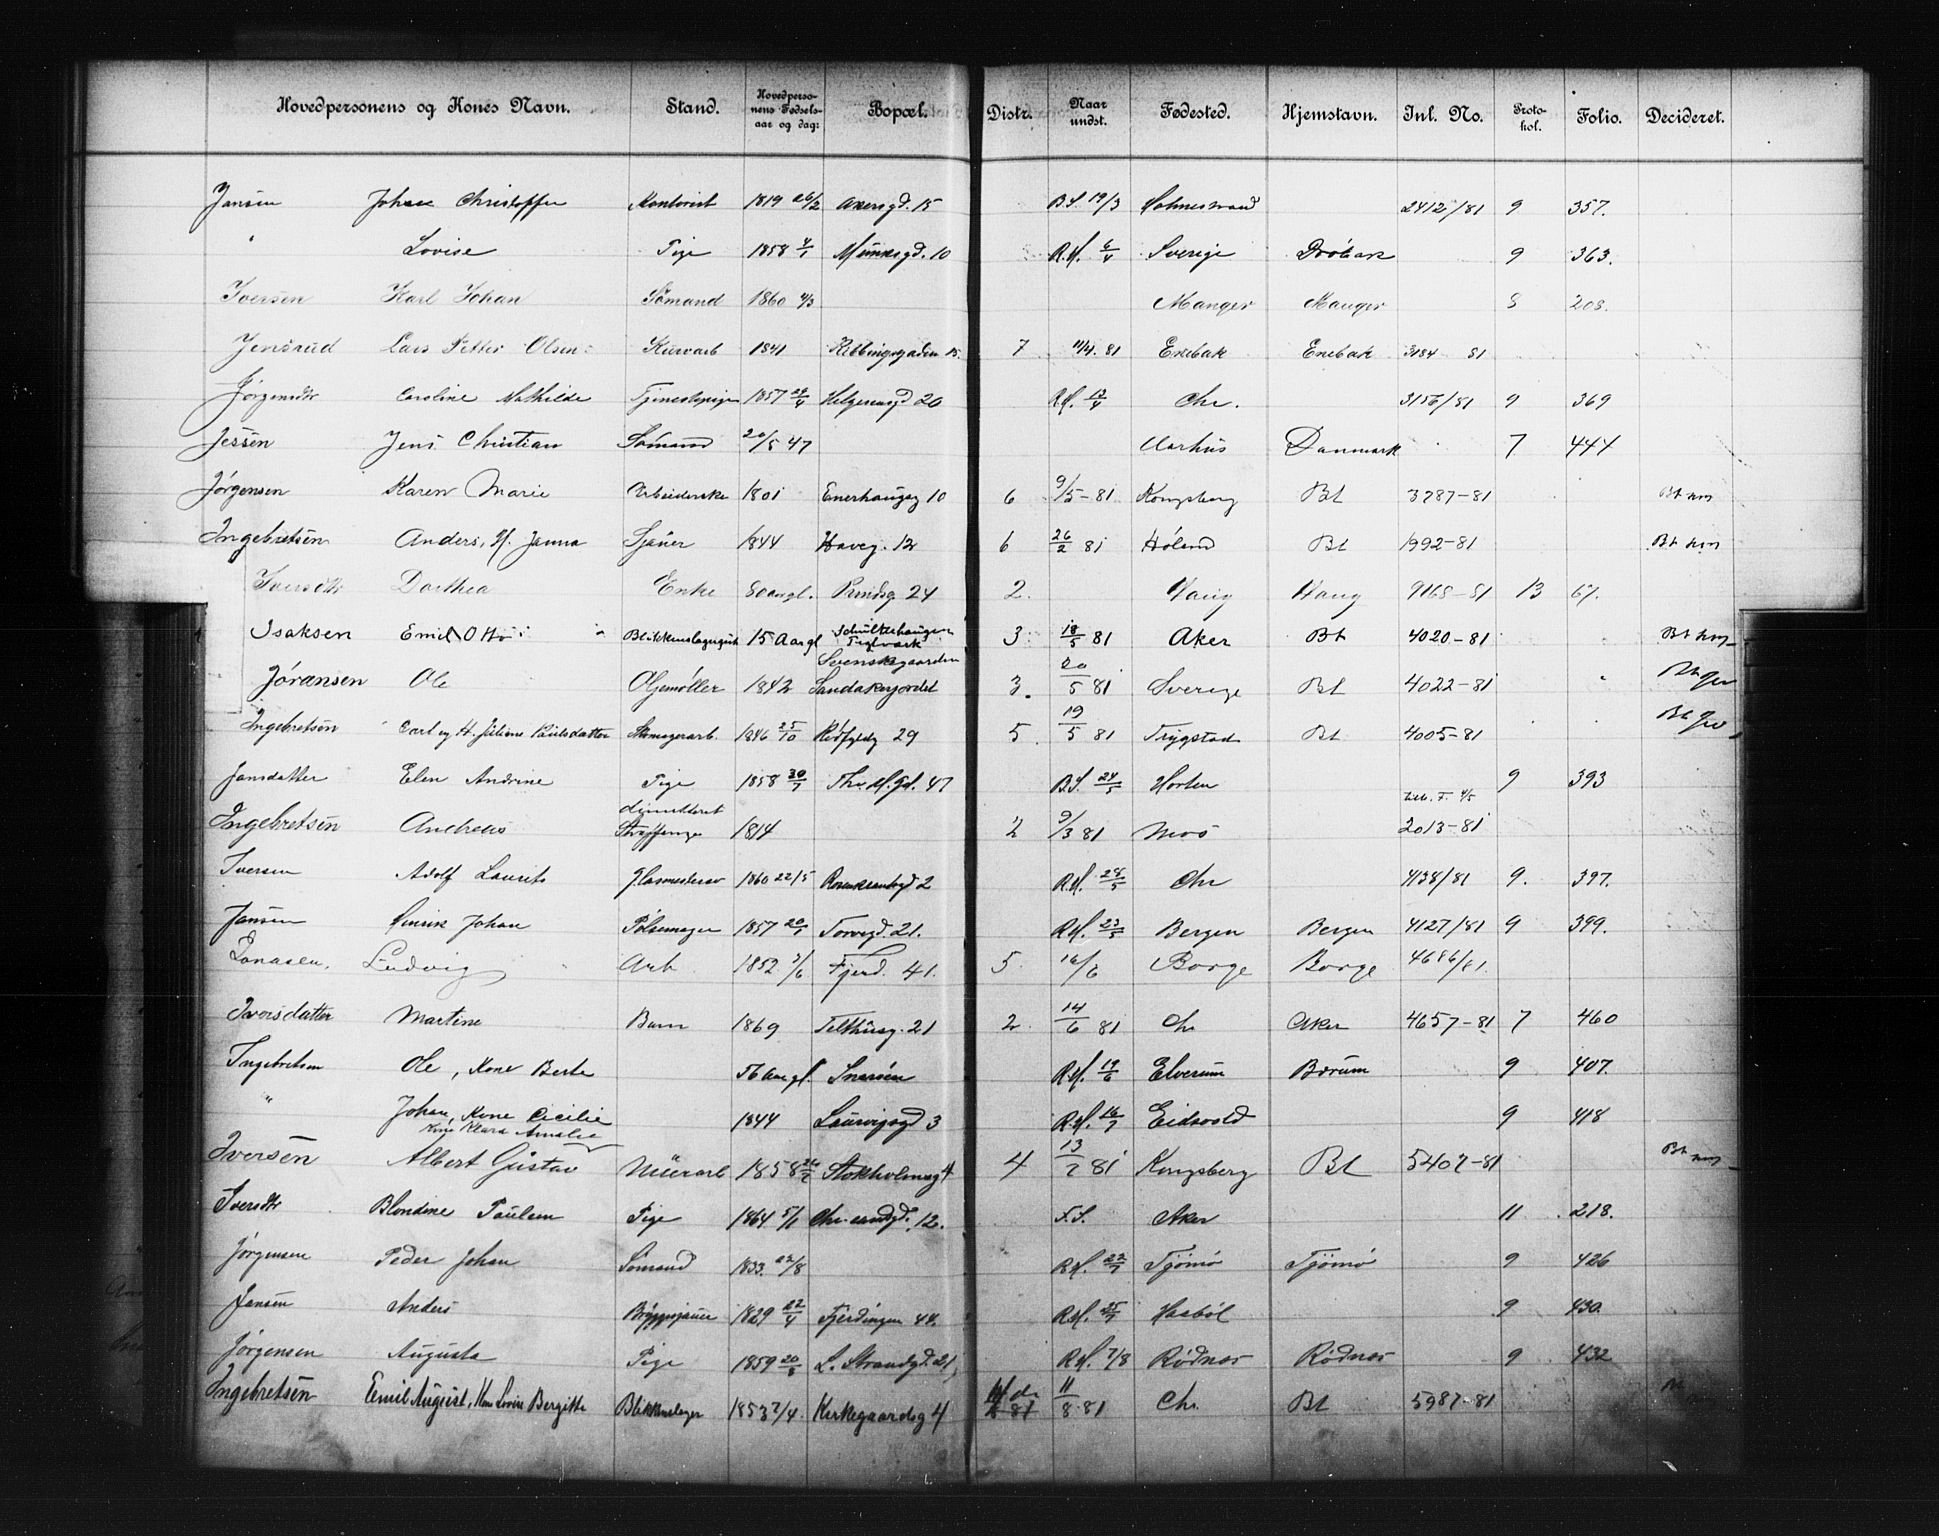 Hovedpersonens og Kones Navn. Stand. Hovedpersonens Fødselsaar og dag: Bopæl. Distr. Naar undst. Fødested. Hjemstavn. Inl. No. Protokol. Folio. Decideret.
Jansen Johan Christoffer Kontorist 1819 26/2 Akersgd. 15 B.S. 19/3 Holmestrand 2412/81 9 357.
" Lovise Pige 1858 Munkegd. 10 R.H. 6/4 Sverige Dröbak 9 363.
Iversen Karl Johan Sömand 1860 4/3 Manger Manger 8 208.
Jensrud Lars Petter Olsen Kurvarb 1841 Ribbingsgaden 15. 7 11/4. 81 Enebak Enebak 3184 81
Jørgensdtr Caroline Mathilde Tjenestepige 1857 Helgesensgd 20 R.H. 13/4 Chr. 3156/81 9 369
Jessen Jens Christian Sömand 20/5 47 Aarhus Danmark 7 444
Jørgensen Karen Marie Arbeiderske 1801 Enerhaugsg 10 6 9/5-81 Kongsberg Bt 3787-81
Ingebretsen Anders, H. Janna Sjauer 1844 Haveg. 12 6 26/2 81 Höland Bt 1992-81
Iversdtr Dorthea Enke 80 aar gl. Prindsg 24 2. Haug Haug 9168-81 13 67.
Isaksen Emil Otto Blikkenslagergut 15 Aar gl Schultzehaugen Teglverk 3 18/5 81 Aker Bt 4020-81
Svenskegaarden
Jöransen Ole Oljemøller 1842 Sandakerjordet 3. 20/5 81 Sverige Bt 4022-81
Ingebretsen Carl og H. Juliane Paulsdatter Skomagerarb. 1846 25/10 Rödfyldg 29 5. 19/5 81 Trygstad Bt 4005-81
Jansdatter Elen Andrine Pige 1858 30/7 Thv. M. Gd. 47 B.S. 24/5 Horten 9 393
Ingebretsen Andreas dimitteret Straffange 1814 2 9/3 81 Moss 2013-81
Iversen Adolf Laurits Glasmestersv 1860 22/5 Rosenkrantzgd 2 R.H. 28/5 Chr 4138/81 9. 397.
Jansen Henrik Johan Pölsemager 1857 Torvegd. 21. R.H. 23/5 Bergen Bergen 4127/81 9 399.
Jonasen. Ludvig Arb 1852 Fjerd. 41. 5. 16/6 Borge Borge 4686/81.
Iversdatter Martine Barn 1869 Telthusg. 21 2. 14/6 81 Chr Aker 4657-81 7 460
Ingebretsen Ole, Kone Berte 56 aar gl. Snarøen R.H. 19/6 Elverum Bærum 9 407.
" Johan, Kone Cicilie 1844 Laurvigsgd 3 R.H. 16/7 Eidsvold 9 418
Kone Klara Amalie
Iversen Albert Gustav Murarb 1858 Stokholmsg 4 4 13/7 81 Kongsberg Bt 5407-81
Iversdtr Blondine Paulsen Pige 1864 5/1 Chr.sandgd. 12. F.S. Aker 11 218.
Jørgensen Peder Johan Sömand 1833. 22/8 R.H. 22/7 Tjömö Tjömö 9 426
Jansen Anders Bryggesjauer 1829 22/4 Fjerdingen 44. R.H. 25/7 Hasböl 9 430.
Jørgensen Augusta Pige 1859 20/8 L. Strandgd. 21, R.H. 7/8 Rödnes Rödnes 9 432
Ingebretsen Emil August, Kone Lovise Bergitte Blikkenslager 1853 7/4. Kirkegaardsg 4 11/8.81 Chr. Bt 5987-81